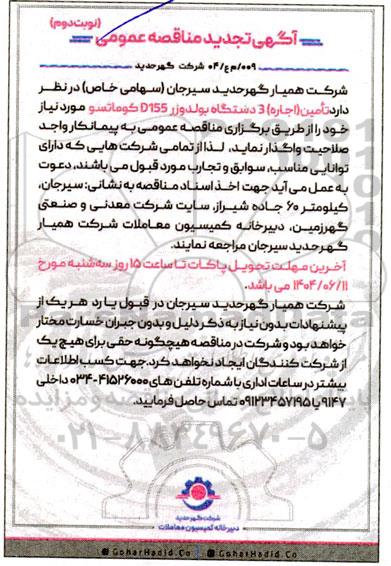 (نوبت دوم)
آگهی تجدید مناقصه عمومی
۰۰۹/م ع/۰۴ شرکت گهرحدید
شرکت همیار گهرحدید سیرجان (سهامی خاص) در نظر
دارد تأمین(اجاره) 3 دستگاه بولدوزر D155 کوماتسو مورد نیاز
خود را از طریق برگزاری مناقصه عمومی به پیمانکار واجد
صلاحیت واگذار نماید، لذا از تمامی شرکت هایی که دارای
توانایی مناسب، سوابق و تجارب مورد قبول می باشند، دعوت
به عمل می آید جهت اخذ اسناد مناقصه به نشانی: سیرجان،
کیلومتر ۶۰ جاده شیراز، سایت شرکت معدنی و صنعتی
گهرزمین، دبیرخانه کمیسیون معاملات شرکت همیار
گهرحدید سیرجان مراجعه نمایند.
آخرین مهلت تحویل پاکات تا ساعت ۱۵ روز سه‌شنبه مورخ
۱۴۰۴/۰۶/۱۱ می باشد.
شرکت همیار گهرحدید سیرجان در قبول یا رد هر یک از
پیشنهادات بدون نیاز به ذکر دلیل و بدون جبران خسارت مختار
خواهد بود و شرکت در مناقصه هیچگونه حقی برای هیچ یک
از شرکت کنندگان ایجاد نخواهد کرد. جهت کسب اطلاعات
بیشتر در ساعات اداری با شماره تلفن های ۴۱۵۲۶۰۰۰-۰۳۴ داخلی
۹۱۴۷ یا ۰۹۱۲۳۴۵۷۱۹۵ تماس حاصل فرمایید.
۰۲۱-۸۸۳۴۹۶۷۰-۵
شرکت گهرحدید
دبیرخانه کمیسیون معاملات
GoharHadid.Co GoharHadid.Co